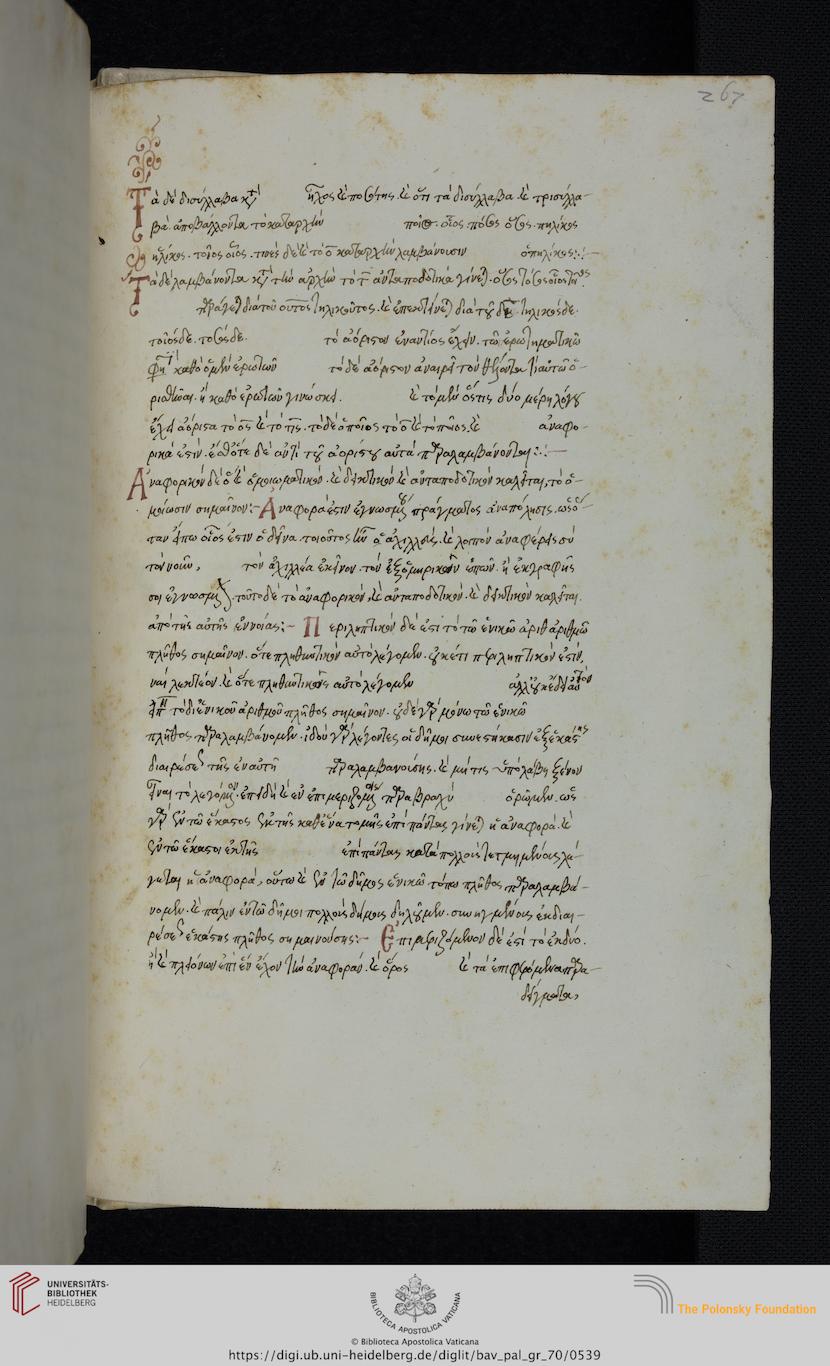 267
Τὰ δὲ δισύλλαβα καὶ ὅτι τὰ δισύλλαβα καὶ τρισύλλα-
βα ἀποβάλλοντα τὸ καταρχὴν ποῖος. οἷος. πόσος ὅσος. πηλίκος
ἡλίκος. τοῖος οἷος. τινὲς δὲ καὶ τὸ ο καταρχὴν λαμβάνουσιν ὁπηλίκος:
Τὰ δὲ λαμβάνοντα τὴν ἀρχὴν τὸ τ ἀνταποδοτικὰ γίνεται. ὅσος τόσος οἷος
παράγεται διὰ τοῦ οὗτος τηλικοῦτος. καὶ ἐπεκτείνεται διὰ τοῦ δε τηλικόσδε.
τοιόσδε. τοσόσδε. τὸ ἀόριστον ἐναντίως ἔχειν. τῶ ἐρωτηματικῶ
φησὶ καθὸ ὁ μὲν ἐρωτῶν τὸ δὲ ἀόριστον ἀναιρεῖ
ἢ καθὸ ἐρωτῶν γινώσκει. καὶ τὸ μὲν ὅστις δύο μέρη λόγου
ἔχει ἀόριστα τὸ ὃς καὶ τὸ τὶς. τὸ δὲ ὁποῖος τὸ ὃ καὶ τὸ ποῖος. καὶ ἀναφο-
ρικά ἐστιν. ἔσθ' ὅτε δὲ ἀντὶ τοῦ ἀορίστου αὐτὰ παραλαμβάνονται:
Ἀναφορικὸν δέ ὃ καὶ ὁμοιωματικὸν. καὶ δεικτικὸν καὶ ἀνταποδοτικὸν καλεῖται, τὸ ὁ-
μοίωσιν σημαῖνον: Ἀναφορά ἐστιν ἐγνωσμένου πράγματος ἀναπόλησις. ὡς ὅ-
ταν εἴπω οἷός ἐστιν ὁ δεῖνα. τοιοῦτος ἦν ὁ ἀχιλλεύς. καὶ λοιπὸν ἀναφέρεις σὺ
τὸν νοῦν, τὸν ἀχιλλέα ἐκεῖνον. τὸν ἐξ ὁμηρικῶν ἐπῶν. ἢ ἐκ γραφῆς
σοι ἐγνωσμένον. τοῦτο δὲ τὸ ἀναφορικὸν, καὶ ἀνταποδοτικὸν. καὶ δεικτικὸν καλεῖται.
ἀπὸ τῆς αὐτῆς ἐννοίας: Περιληπτικὸν δέ ἐστι τὸ τῶ ἑνικῶ ἀριθ ἀριθμῶ
πλῆθος σημαῖνον. ὅτε πληθυντικὸν αὐτὸ λέγομεν. οὐκέτι περιληπτικόν ἐστιν,
ναὶ λεκτέον. καὶ ὅτε πληθυντικῶς αὐτὸ λέγομεν
τὸ δι ἑνικοῦ ἀριθμοῦ πλῆθος σημαῖνον. οὐδὲ γὰρ μόνω τῶ ἑνικῶ
πλῆθος παραλαμβάνομεν. ἰδοὺ γὰρ λέγοντες οἱ δῆμοι συνεστήκασιν ἐξ ἑκάστης
διαιρέσεως τῆς ἐν αὐτῆ παραλαμβανούσης. καὶ μή τις ὑπολάβη ξένον
εἶναι τὸ λεγόμενον. ἐπειδὴ καὶ ἐν ἐπιμεριζομένοις παραβραχὺ ὁρῶμεν. ὡς
γὰρ ἐν τῶ ἕκαστος ἐκ τῆς καθ' ἕνα τομῆς ἐπὶ πάντας γίνεται ἡ ἀναφορά. καὶ
ἐν τῶ ἕκαστοι ἐκ τῆς ἐπὶ πάντας κατὰ πολλοὺς τετμημένους λέ-
γεται ἡ ἀναφορά, οὕτω καὶ ἐν τῶ δῆμος ἑνικῶ τύπω πλῆθος παραλαμβά-
νομεν. καὶ πάλιν ἐν τῶ δῆμοι πολλοὺς δήμους δηλοῦμεν. συνηγμένους ἐκ διαι-
ρέσεως ἑκάστης πλῆθος σημαινούσης: Ἐπιμεριζόμενον δέ ἐστι τὸ ἐκ δύο.
ἢ καὶ πλειόνων ἐπὶ ἓν ἔχον τὴν ἀναφοράν. καὶ ὅρος καὶ τὰ ἐπιφερόμενα παρα-
δείγματα,
UNIVERSITÄTS-
BIBLIOTHEK
HEIDELBERG
BIBLIOTECA APOSTOLICA VATICANA
The Polonsky Foundation
© Biblioteca Apostolica Vaticana
https://digi.ub.uni-heidelberg.de/diglit/bav_pal_gr_70/0539